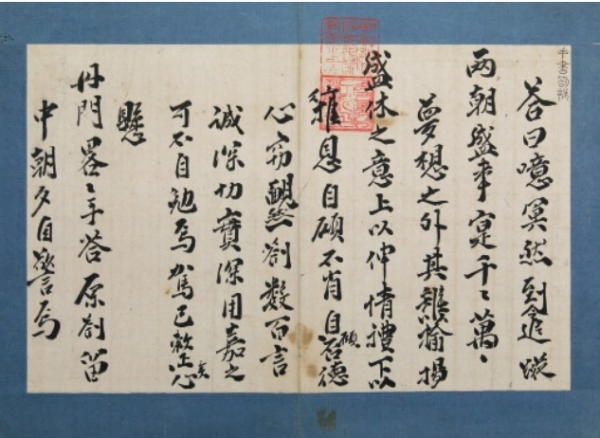 答曰噫冥然到追蹤
兩朝盛事寔千々萬々
夢想之外其揄揚
盛休之意上以伸情禮下以
雅息自顧不肖自石德
心窃靦然劄數百言
誠深切寶深用嘉之
可不自勉焉駕已
懸
丹門畧々手答原劄留
中朝夕自警焉